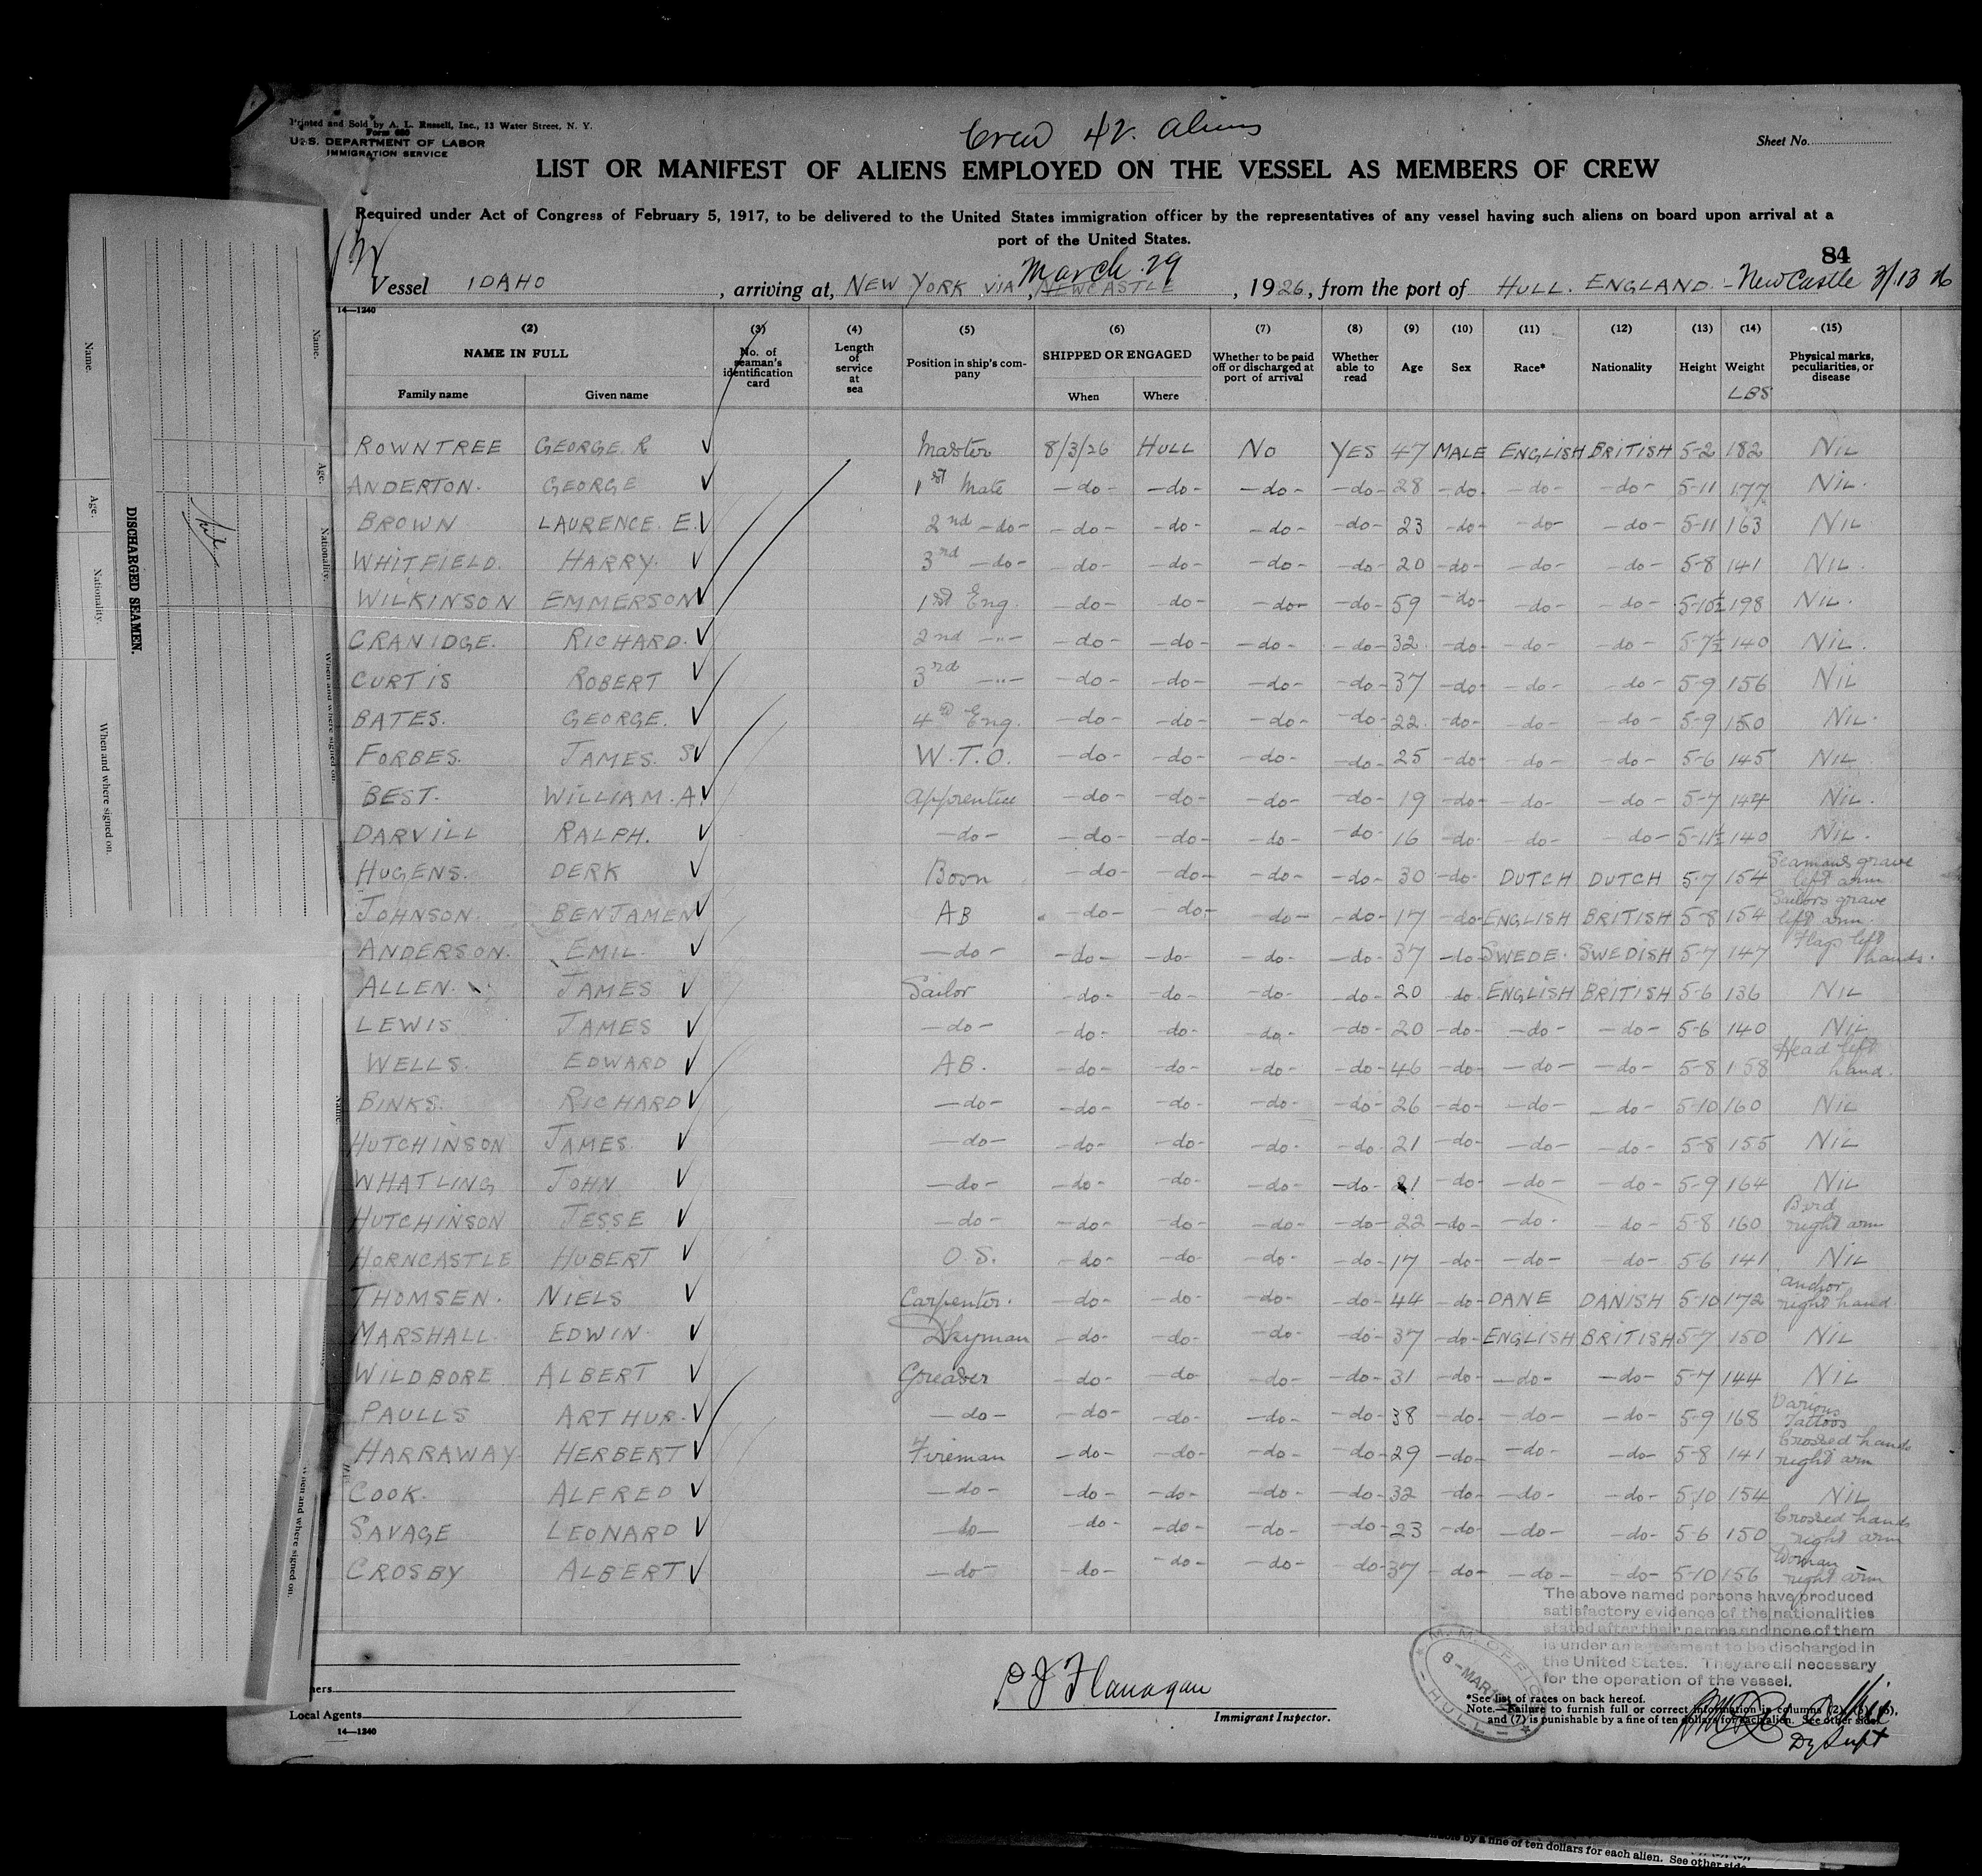 Printed and Sold by A. L. Russell, Inc., 13 Water Street, N. Y.
Form 680
U. S. DEPARTMENT OF LABOR
IMMIGRATION SERVICE
Crew 42 Aliens
Sheet No.
LIST OR MANIFEST OF ALIENS EMPLOYED ON THE VESSEL AS MEMBERS OF CREW
Required under Act of Congress of February 5, 1917, to be delivered to the United States immigration officer by the representatives of any vessel having such aliens on board upon arrival at a
port of the United States.
84
Vessel IDAHO, arriving at, NEW YORK VIA NEWCASTLE March 29, 1926, from the port of HULL. ENGLAND. - New Castle 3/13 26
14—1240
(2) (3) (4) (5) (6) (7) (8) (9) (10) (11) (12) (13) (14) (15)
NAME IN FULL No. of seaman's identification card Length of service at sea Position in ship's company SHIPPED OR ENGAGED Whether to be paid off or discharged at port of arrival Whether able to read Age Sex Race* Nationality Height Weight LBS Physical marks, peculiarities, or disease
Family name Given name When Where
ROWNTREE GEORGE R Master 8/3/26 HULL NO YES 47 MALE ENGLISH BRITISH 5-2 182 NIL
ANDERTON. GEORGE 1st Mate -do- -do- -do- -do- 28 -do- -do- -do- 5-11 177 NIL.
BROWN LAURENCE. E. 2nd -do- -do- -do- -do- -do- 23 -do- -do- -do- 5-11 163 NIL
WHITFIELD. HARRY. 3rd -do- -do- -do- -do- -do- 20 -do- -do- -do- 5-8 141 NIL.
WILKINSON EMMERSON 1st Eng. -do- -do- -do- -do- 59 -do- -do- -do- 5-10½ 198 NIL.
CRANIDGE. RICHARD. 2nd -"- -do- -do- -do- -do- 32 -do- -do- -do- 5-7½ 140 NIL.
CURTIS ROBERT 3rd -"- -do- -do- -do- -do- 37 -do- -do- -do- 5-9 156 NIL
BATES. GEORGE. 4th Eng. -do- -do- -do- -do- 22 -do- -do- -do- 5-9 150 NIL.
FORBES. JAMES. S W.T.O. -do- -do- -do- -do- 25 -do- -do- -do- 5-6 145 NIL
BEST. WILLIAM. A. Apprentice -do- -do- -do- -do- 19 -do- -do- -do- 5-7 144 NIL.
DARVILL RALPH. -do- -do- -do- -do- -do- 16 -do- -do- -do- 5-11½ 140 NIL.
HUGENS. DERK Bosn -do- -do- -do- -do- 30 -do- DUTCH DUTCH 5-7 154 Seamans grave left arm
JOHNSON. BENJAMEN AB -do- -do- -do- -do- 17 -do- ENGLISH BRITISH 5-8 154 Sailors grave left arm.
ANDERSON. EMIL. -do- -do- -do- -do- -do- 37 -do- SWEDE. SWEDISH 5-7 147 Flags left hands.
ALLEN. JAMES Sailor -do- -do- -do- -do- 20 -do- ENGLISH BRITISH 5-6 136 NIL
LEWIS JAMES -do- -do- -do- -do- -do- 20 -do- -do- -do- 5-6 140 NIL
WELLS. EDWARD AB. -do- -do- -do- -do- 46 -do- -do- -do- 5-8 158 Head left hand.
BINKS. RICHARD -do- -do- -do- -do- -do- 26 -do- -do- -do- 5-10 160 NIL
HUTCHINSON JAMES. -do- -do- -do- -do- -do- 21 -do- -do- -do- 5-8 155 NIL
WHATLING JOHN -do- -do- -do- -do- -do- 21 -do- -do- -do- 5-9 164 NIL
HUTCHINSON JESSE -do- -do- -do- -do- -do- 22 -do- -do- -do- 5-8 160 Bird right arm
HORNCASTLE HUBERT O.S. -do- -do- -do- -do- 17 -do- -do- -do- 5-6 141 NIL
THOMSEN. NIELS Carpenter. -do- -do- -do- -do- 44 -do- DANE DANISH 5-10 172 anchor right hand.
MARSHALL. EDWIN. Dkyman -do- -do- -do- -do- 37 -do- ENGLISH BRITISH 5-7 150 NIL
WILDBORE ALBERT Greaser -do- -do- -do- -do- 31 -do- -do- -do- 5-7 144 NIL
PAULLS ARTHUR. -do- -do- -do- -do- -do- 38 -do- -do- -do- 5-9 168 Various Tattoos
HARRAWAY. HERBERT Fireman -do- -do- -do- -do- 29 -do- -do- -do- 5-8 141 Crossed hands right arm
COOK. ALFRED -do- -do- -do- -do- -do- 32 -do- -do- -do- 5-10 154 NIL
SAVAGE LEONARD -do- -do- -do- -do- -do- 23 -do- -do- -do- 5-6 150 Crossed hands right arm
CROSBY ALBERT -do- -do- -do- -do- -do- 37 -do- -do- -do- 5-10 156 Woman right arm
The above named persons have produced
satisfactory evidence of the nationalities
stated after their names and none of them
is under an agreement to be discharged in
the United States. They are all necessary
for the operation of the vessel.
M. M. OFFICE
8-MAR
HULL
P J Flanagan
Immigrant Inspector.
ners
Local Agents
14—1240
*See list of races on back hereof.
Note.—Failure to furnish full or correct information in columns (2), (5), (6),
and (7) is punishable by a fine of ten dollars for each alien. See other side.
Dy Supt
DISCHARGED SEAMEN.
Name.
Age.
Nationality.
When and where signed on.
Nil
Name.
Age.
Nationality.
When and where signed on.
Name
When and where signed on.
able by a fine of ten dollars for each alien. See other side